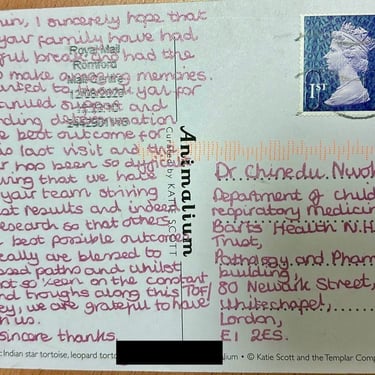 un, I sincerely hope that
your family have had
ful break and had the
to make many memories.
nted to thank you for
inued support and
ding determination
e best outcome for
is last visit and this
r has been so diff
ing that we have
your team striving
at results and indeed
esearch so that others
e best possible outcome
eally are blessed to
sed paths and whilst
not so keen on the constant
and troughs along this TOFI
ey, we are grateful to have
n us.
sincere thanks
Royal Mail
Romford
Mail Centre
12/08/2020
1ST
Animalium
Curated by KATIE SCOTT
Dr. Chinedu Nwok
Department of child
respiratory medicin
Barts Health N.H.
Trust,
Pathology and Pharm
building
80 Newark Street,
Whitechapel,
London,
E1 2ES.
: Indian star tortoise, leopard torto
alium • © Katie Scott and the Templar Comp